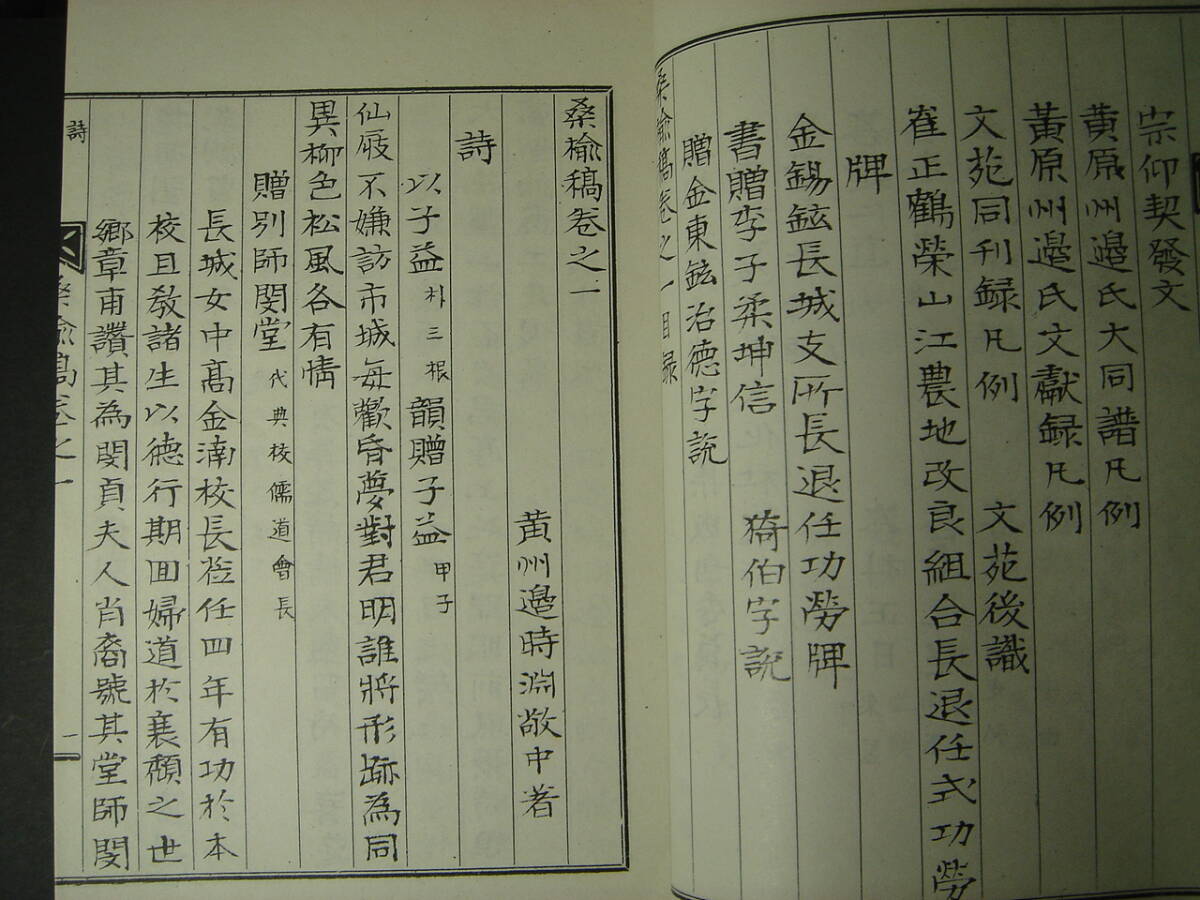 宗仰契發文
黄原州邊氏大同譜凡例
黄原州邊氏文獻録凡例
文苑同刊録凡例 文苑後識
崔正鶴榮山江農地改良組合長退任式功勞
牌
金錫鉉長城支所長退任功勞牌
書贈李子柔坤信 猗伯字説
贈金東鉉治德字説
桑榆稿卷之一目録
桑榆稿卷之一
黄州邉時淵敬中著
詩
以子益朴三根韻贈子益甲子
仙屐不嫌訪市城每歡昏夢對君明誰將形跡為同
異柳色松風各有情
贈別師閔堂代典校儒道會長
長城女中高金湳校長莅任四年有功於本
校且敎諸生以德行期回婦道於襄頹之世
鄉章甫讚其為閔貞夫人肖裔號其堂師閔
桑榆稿卷之一
詩
一